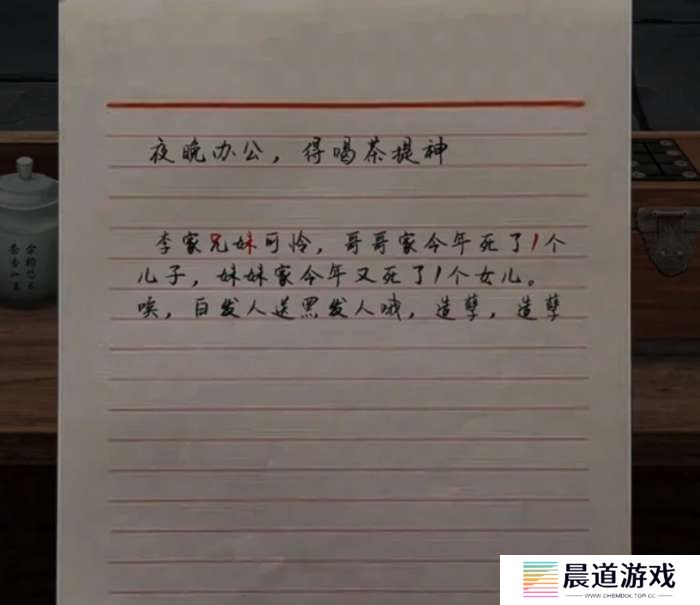 夜晚办公，得喝茶提神
李家兄妹可怜，哥哥家今年死了1个
儿子，妹妹家今年又死了1个女儿。
唉，白发人送黑发人哦，造孽，造孽
晨道游戏
WWW.CHEMDOCTOR.CC